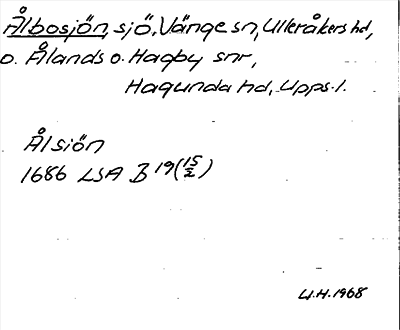 Ålbosjön, sjö, Vänge sn, Ulleråkers hd,
o. Ålands o. Hagby snr,
Hagunda hd, Upps. l.
Ålsjön
1686 LSA B 19 (15/2)
U.H. 1968